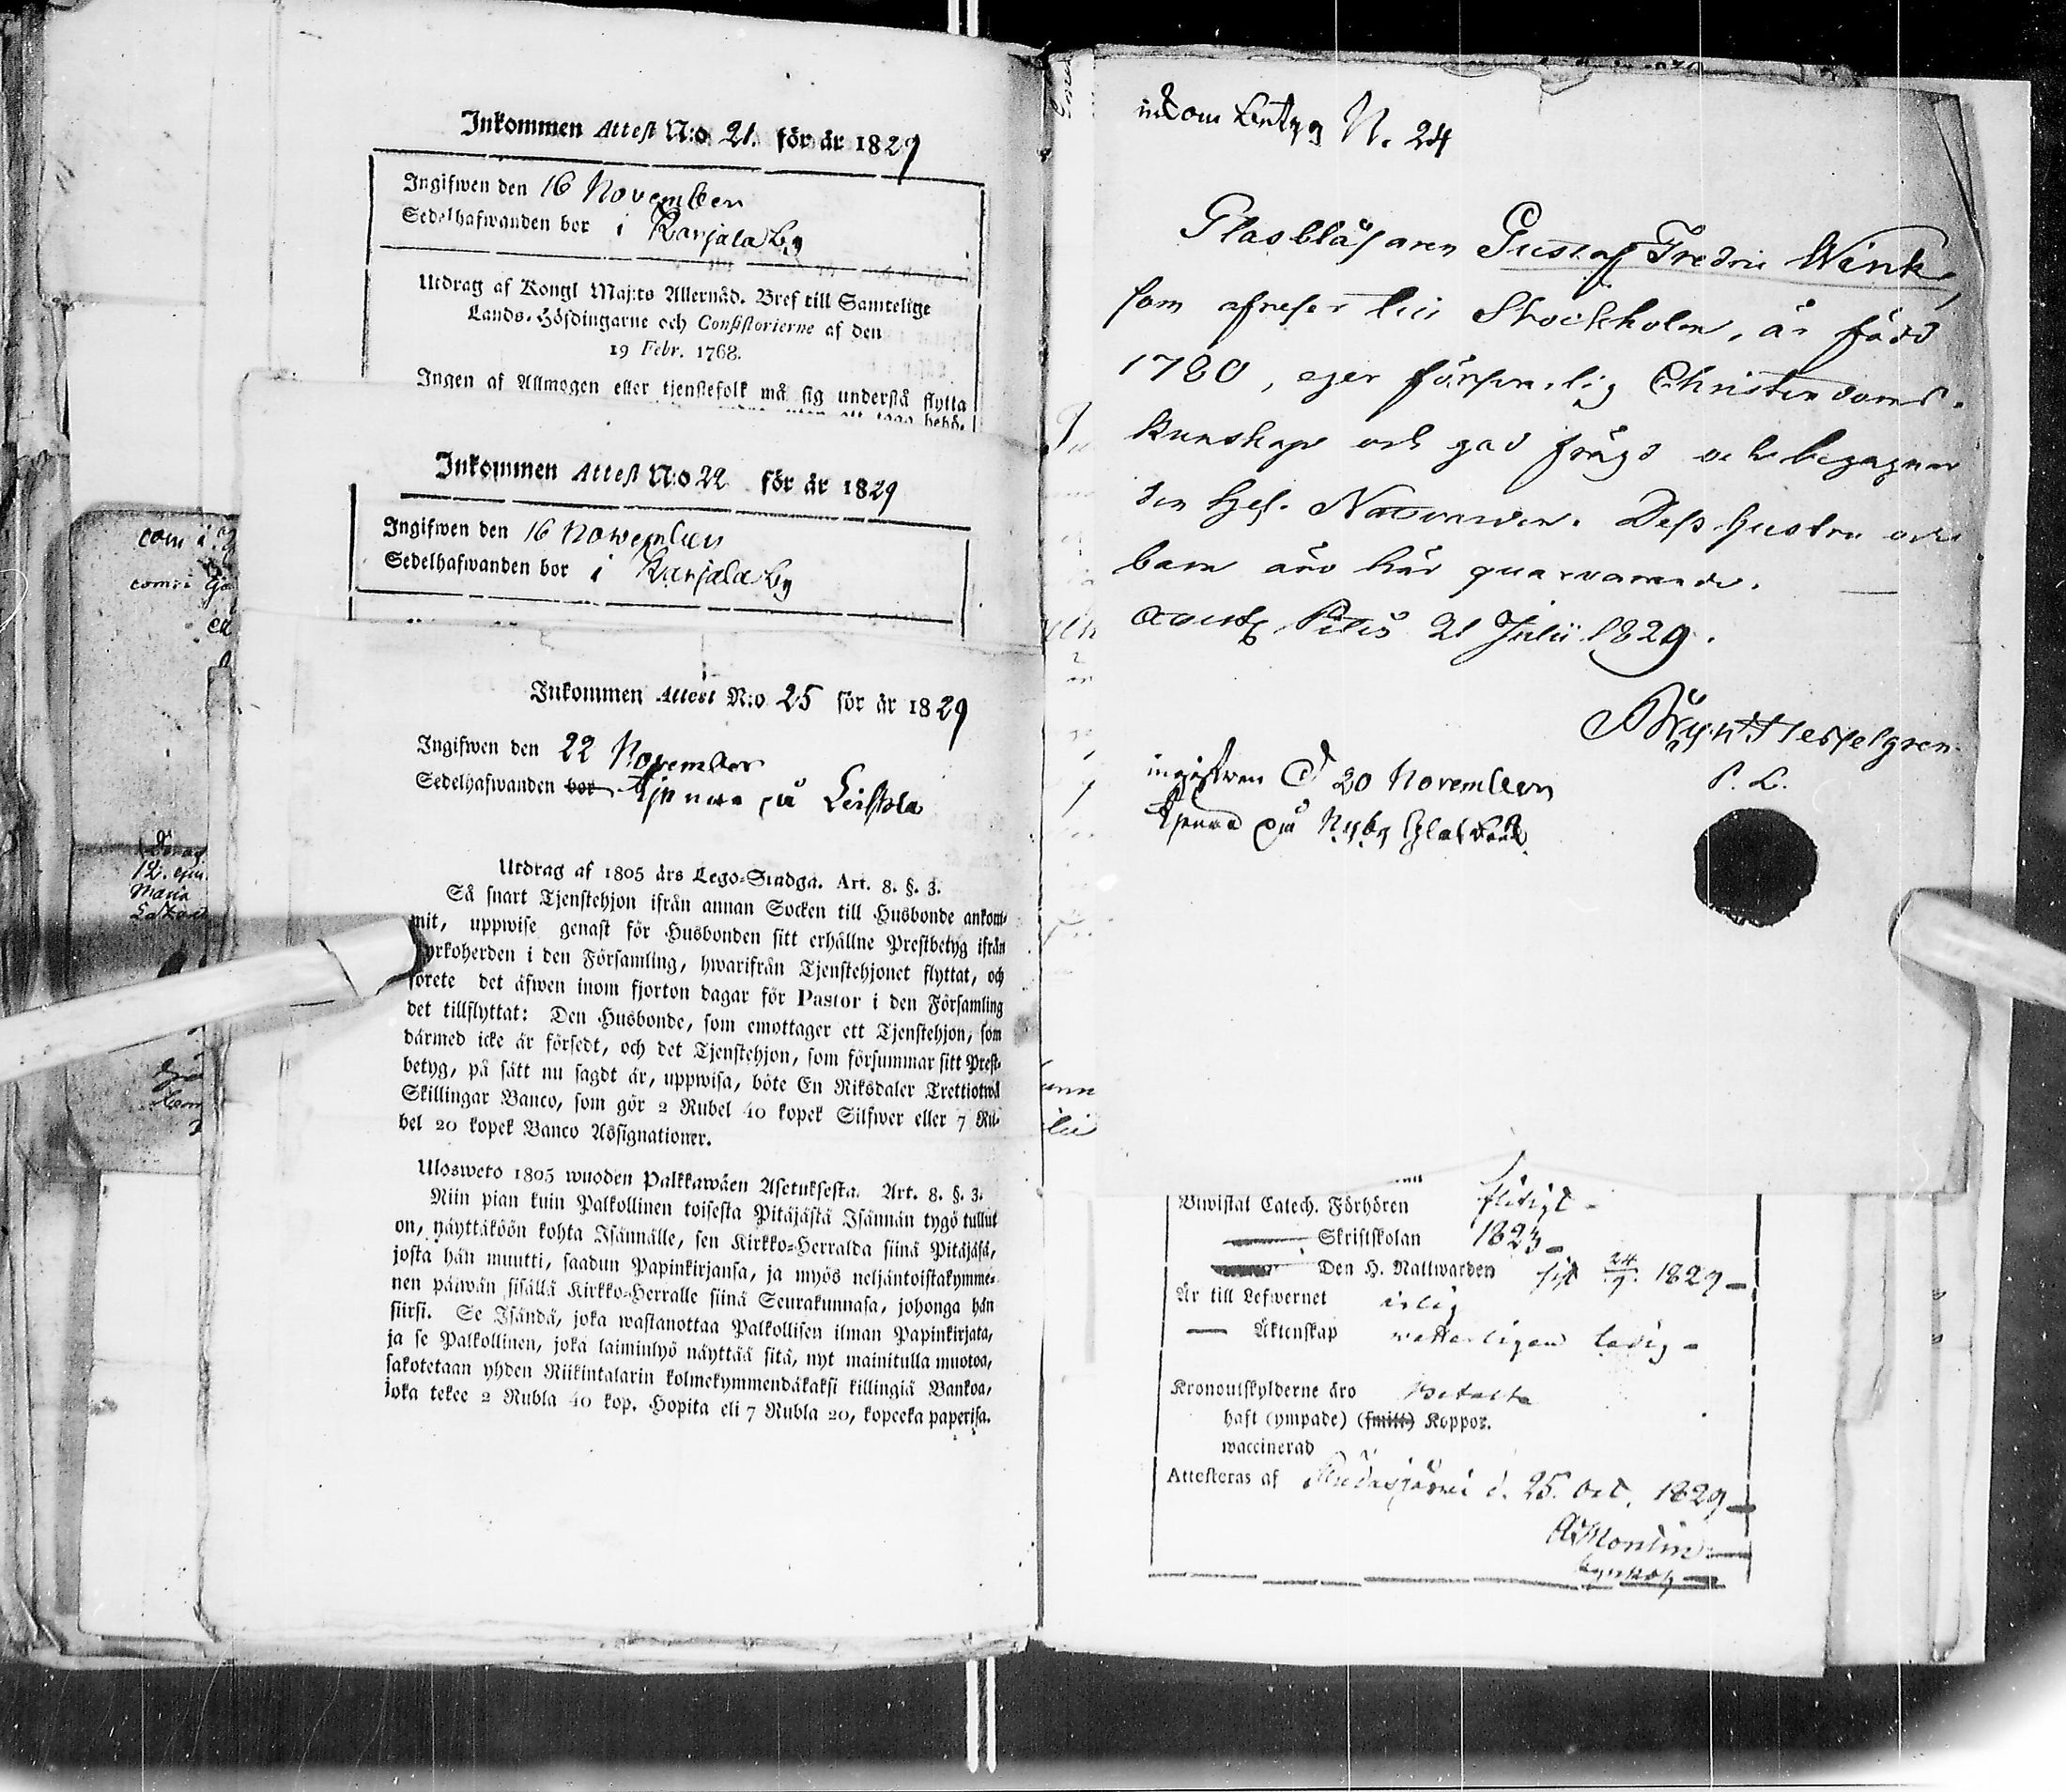 Inkommen Attest N:o 21. för år 1829
Ingifwen den 16 November
Sedelhafwanden bor i Karjala by
Utdrag af Kongl Maj:ts Allernåd. Bref till Samtelige
Lands-Höfdingarne och Consistorierne af den
19 Febr. 1768.
Ingen af Allmogen eller tjenstefolk må sig understå flytta
Inkommen Attest N:o 22 för år 1829
Ingifwen den 16 November
Sedelhafwanden bor i Karjala by
Inkommen Attest N:o 25 för år 1829
Ingifwen den 22 November
Sedelhafwanden bor tjenar på
Utdrag af 1805 års Lego-Stadga. Art. 8. §. 3.
Så snart Tjenstehjon ifrån annan Socken till Husbonde ankom-
mit, uppwise genast för Husbonden sitt erhållne Prestbetyg ifrån
yrkoherden i den Församling, hwarifrån Tjenstehjonet flyttat, och
förete det äfwen inom fjorton dagar för Pastor i den Församling
det tillflyttat: Den Husbonde, som emottager ett Tjenstehjon, som
därmed icke är försedt, och det Tjenstehjon, som försummar sitt Prest-
betyg, på sätt nu sagdt är, uppwisa, böte En Riksdaler Trettiotwå
Skillingar Banco, som gör 2 Rubel 40 kopek Silfwer eller 7 Ru-
bel 20 kopek Banco Assignationer.
Ulosweto 1805 wuoden Palkkawäen Asetuksesta. Art. 8. §. 3.
Niin pian kuin Palkollinen toisesta Pitäjästä Isännän tygö tullut
on, näyttäköön kohta Isännälle, sen Kirkko-Herralda siinä Pitäjäsä,
josta hän muutti, saadun Papinkirjansa, ja myös neljäntoistakymme-
nen päiwän sisällä Kirkko-Herralle siinä Seurakunnasa, johonga hän
siirsi. Se Isändä, joka wastanottaa Palkollisen ilman Papinkirjata,
ja se Palkollinen, joka laiminlyö näyttää sitä, nyt mainitulla muotoa,
sakotetaan yhden Riikintalarin kolmekymmendäkaksi killingiä Bankoa,
joka tekee 2 Rubla 40 kop. Hopita eli 7 Rubla 20, kopeeka paperisa.
inkom betyg N. 24
Glasblåsaren Gustaf Fredric Wenk,
som afreser till Stockholm, är född
1780, eger försvarlig Christendoms-
kunskap och god frägd och begagnar
den hel. Nattvarden. Dess hustru och
barn äro här quarvarande.
Piteå 21 Julii 1829.
Hesselgren
P. L.
ingifwen d 20 November
tjenar på Nyby Glasbruk
Biwistat Catech. Förhören flitigt -
Skriftskolan 1823 -
Den H. Nattwarden sist 24/9. 1829 -
Är till Lefwernet ärlig
Äktenskap ledig -
Kronoutskylderne äro betalta
haft (ympade) (smitt) Koppor.
waccinerad
Attesteras af Pudasjärvi d. 25. Oct. 1829 -